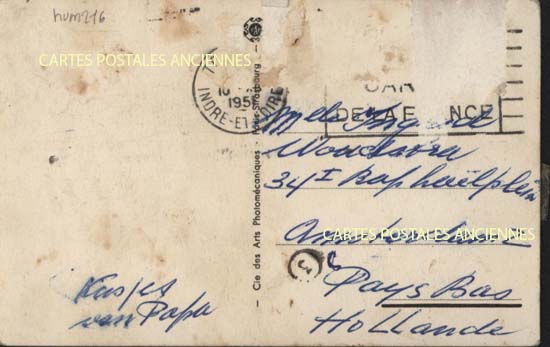 num216
CARTES POSTALES ANCIENNES
10
195
INDRE-ET-LOIRE
DE LA F NCE
— Cie des Arts Photomécaniques - Paris-Strasbourg —
Melle
34 I Raphaëlplein
Amsterdam
CARTES POSTALES ANCIENNES
Pays Bas
Hollande
Kusjes
van Papa